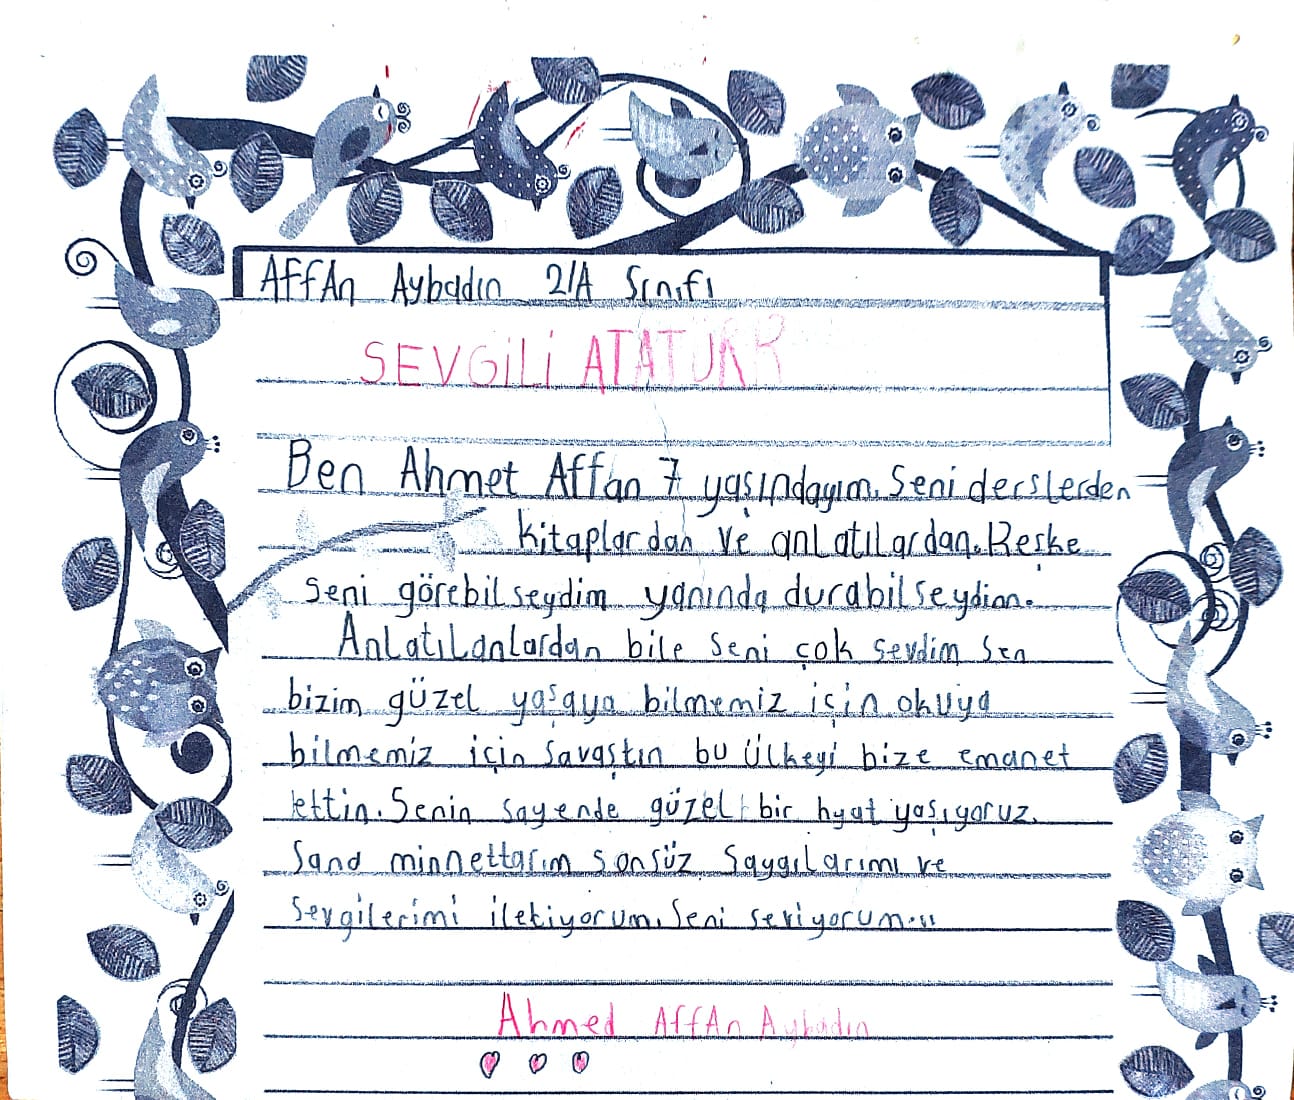 Affan Aybadın 2/A Sınıfı
SEVGİLİ ATATÜRK
Ben Ahmet Affan 7 yaşındayım. Seni derslerden
kitaplardan ve anlatılardan. Keşke
seni görebilseydim yanında durabilseydim.
Anlatılanlardan bile seni çok sevdim sen
bizim güzel yaşaya bilmemiz için okuya
bilmemiz için savaştın bu ülkeyi bize emanet
ettin. Senin sayende güzel bir hyat yaşıyoruz.
Sana minnettarım sonsüz saygılarımı ve
sevgilerimi iletiyorum. Seni seviyorum...
Ahmed Affan Aybadın